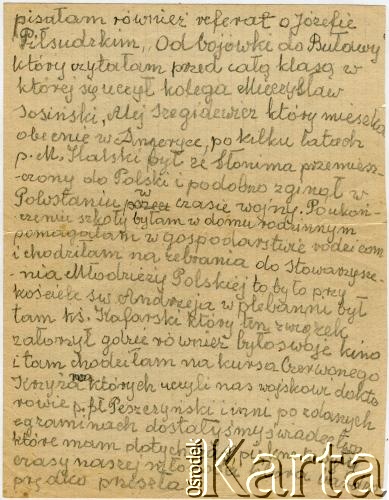 pisałam również referat o Józefie
Piłsudzkim „Od bojówki do Buławy
który czytałam przed całą klasą w
której się uczył kolega Mieczysław
Sosiński, Alej Szegidewicz który mieszka
obecnie w Ameryce, po kilku latach
p. M. Halski był ze Słonima przemiesz-
czony do Polski i podobno zginął w
Powstaniu w czasie wojny. Po ukoń-
czeniu szkoły byłam w domu rodzinnym
pomagałam w gospodarstwie rodzicom
i chodziłam na zebrania do Stowarzysze-
nia Młodzieży Polskiej to było przy
kościele św. Andrzeja w plebanni był
tam ks. Kafarski który ten związek
założył gdzie również było swoje kino
i tam chodziłam na kursa Czerwonego
Krzyża na których uczyli nas wojskowi dokto
rowie p. pł. Peszczyński i inni po zdanych
egzaminach dostałyśmy świadectwa
które mam dotychczas, piękne były
czasy naszej młodości
prędko przeszła
Ośrodek Karta